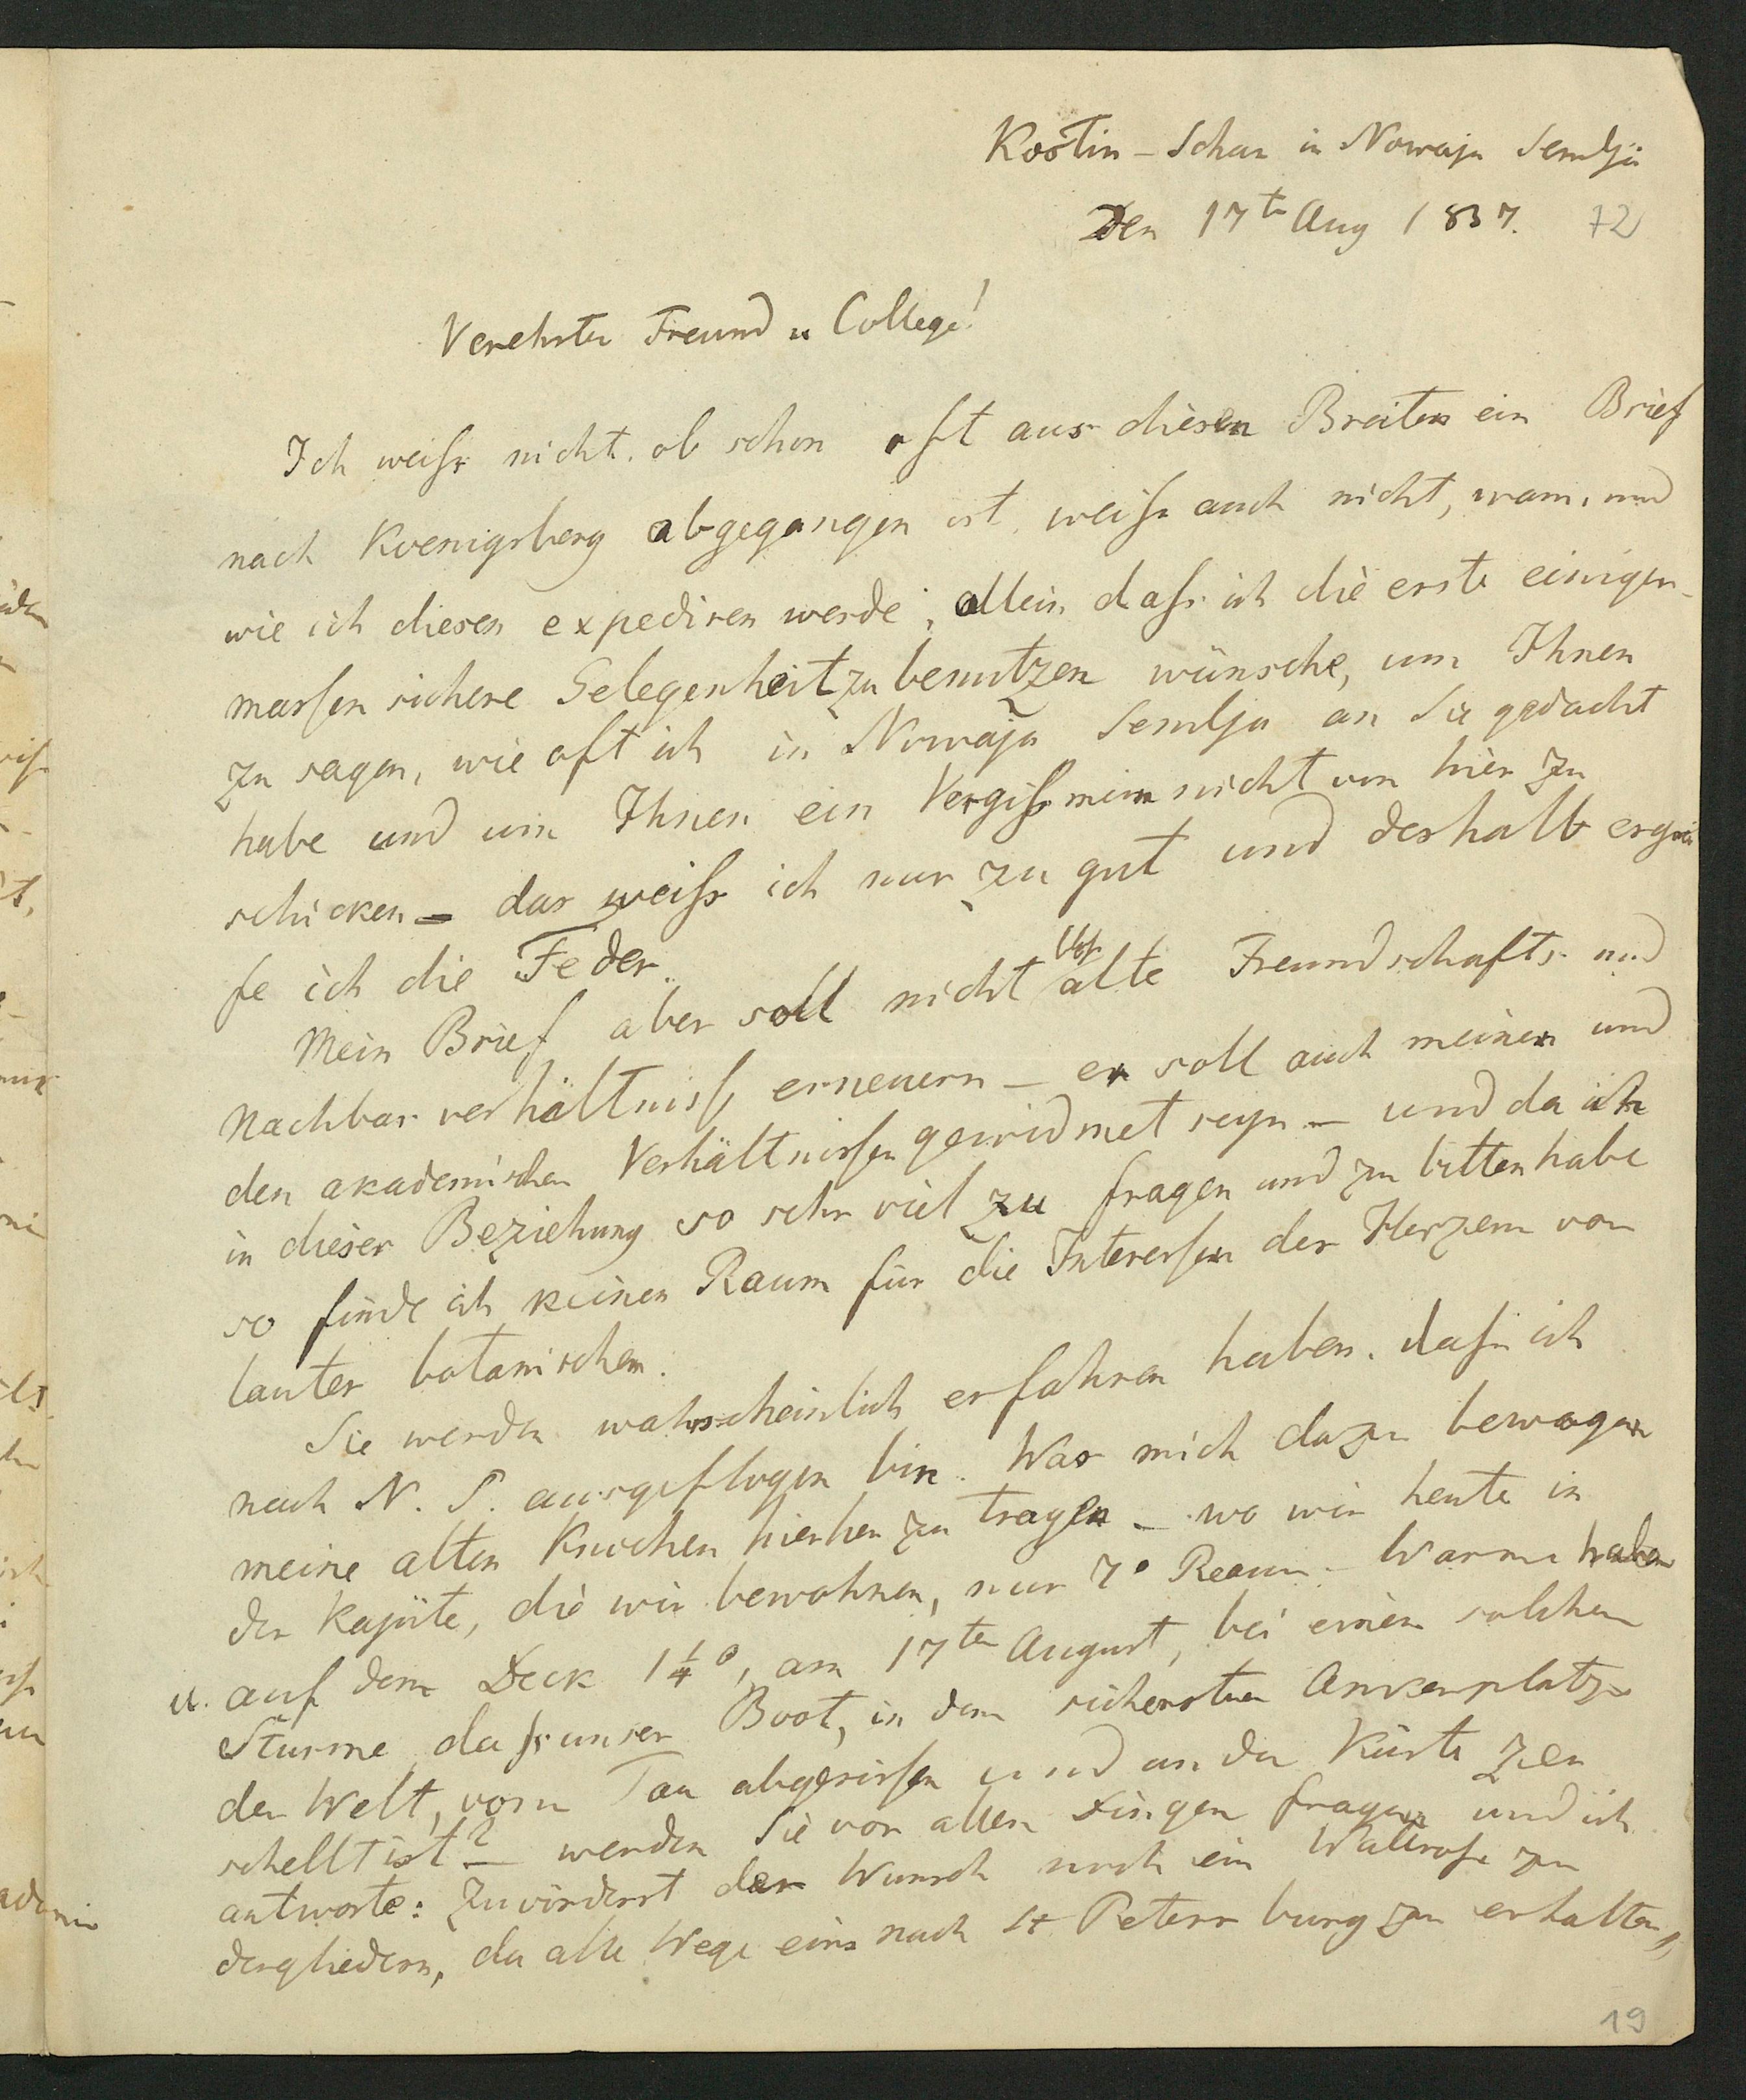 Kostin-Schar in Nowaja Semlja
Den 17ten Aug 1837. 72
Verehrter Freund u College!
Ich weiſs nicht, ob schon oft aus diesen Breiten ein Brief
nach Koenigsberg abgegangen ist, weiſs auch nicht, wann, und
wie ich diesen expediren werde, allein daſs ich die erste einiger-
maſsen sichere Gelegenheit zu benutzen wünsche, um Ihnen
zu sagen, wie oft ich in Nowaja Semlja an Sie gedacht
habe und um Ihnen ein Vergiſsmeinnicht von hier zu
schicken – das weiſs ich nur zu gut und deshalb ergrei
fe ich die Feder.
Mein Brief aber soll nicht bloſs alte Freundschafts- und
Nachbarverhältniſs erneuern – er soll auch meinen und
den akademischen Verhältniſsen gewidmet seyn – und da ich
in dieser Beziehung so sehr viel zu fragen und zu bitten habe
so finde ich keinen Raum für die Intereſsen der Herzen vor
lauter botanischen.
Sie werden wahrscheinlich erfahren haben, daſs ich
nach N. S. ausgeflogen bin. Was mich dazu bewogen
meine alten Knochen hierher zu tragen – wo wir heute in
der Kajüte, die wir bewohnen, nur 7° Reaum. Warme haben
u. auf dem Deck 1¼°, am 17ten August, bei einem solchen
Sturme, daſs unser Boot, in dem sichersten Ankerplatze
der Welt, vom Tau abgeriſsen und an der Küste zer
schellt ist? – werden Sie vor allen Dingen fragen und ich
antworte: Zuvörderst der Wunsch noch ein Wallroſs zu
zergliedern, da alle Wege eins nach St Petersburg zu erhalten,
19